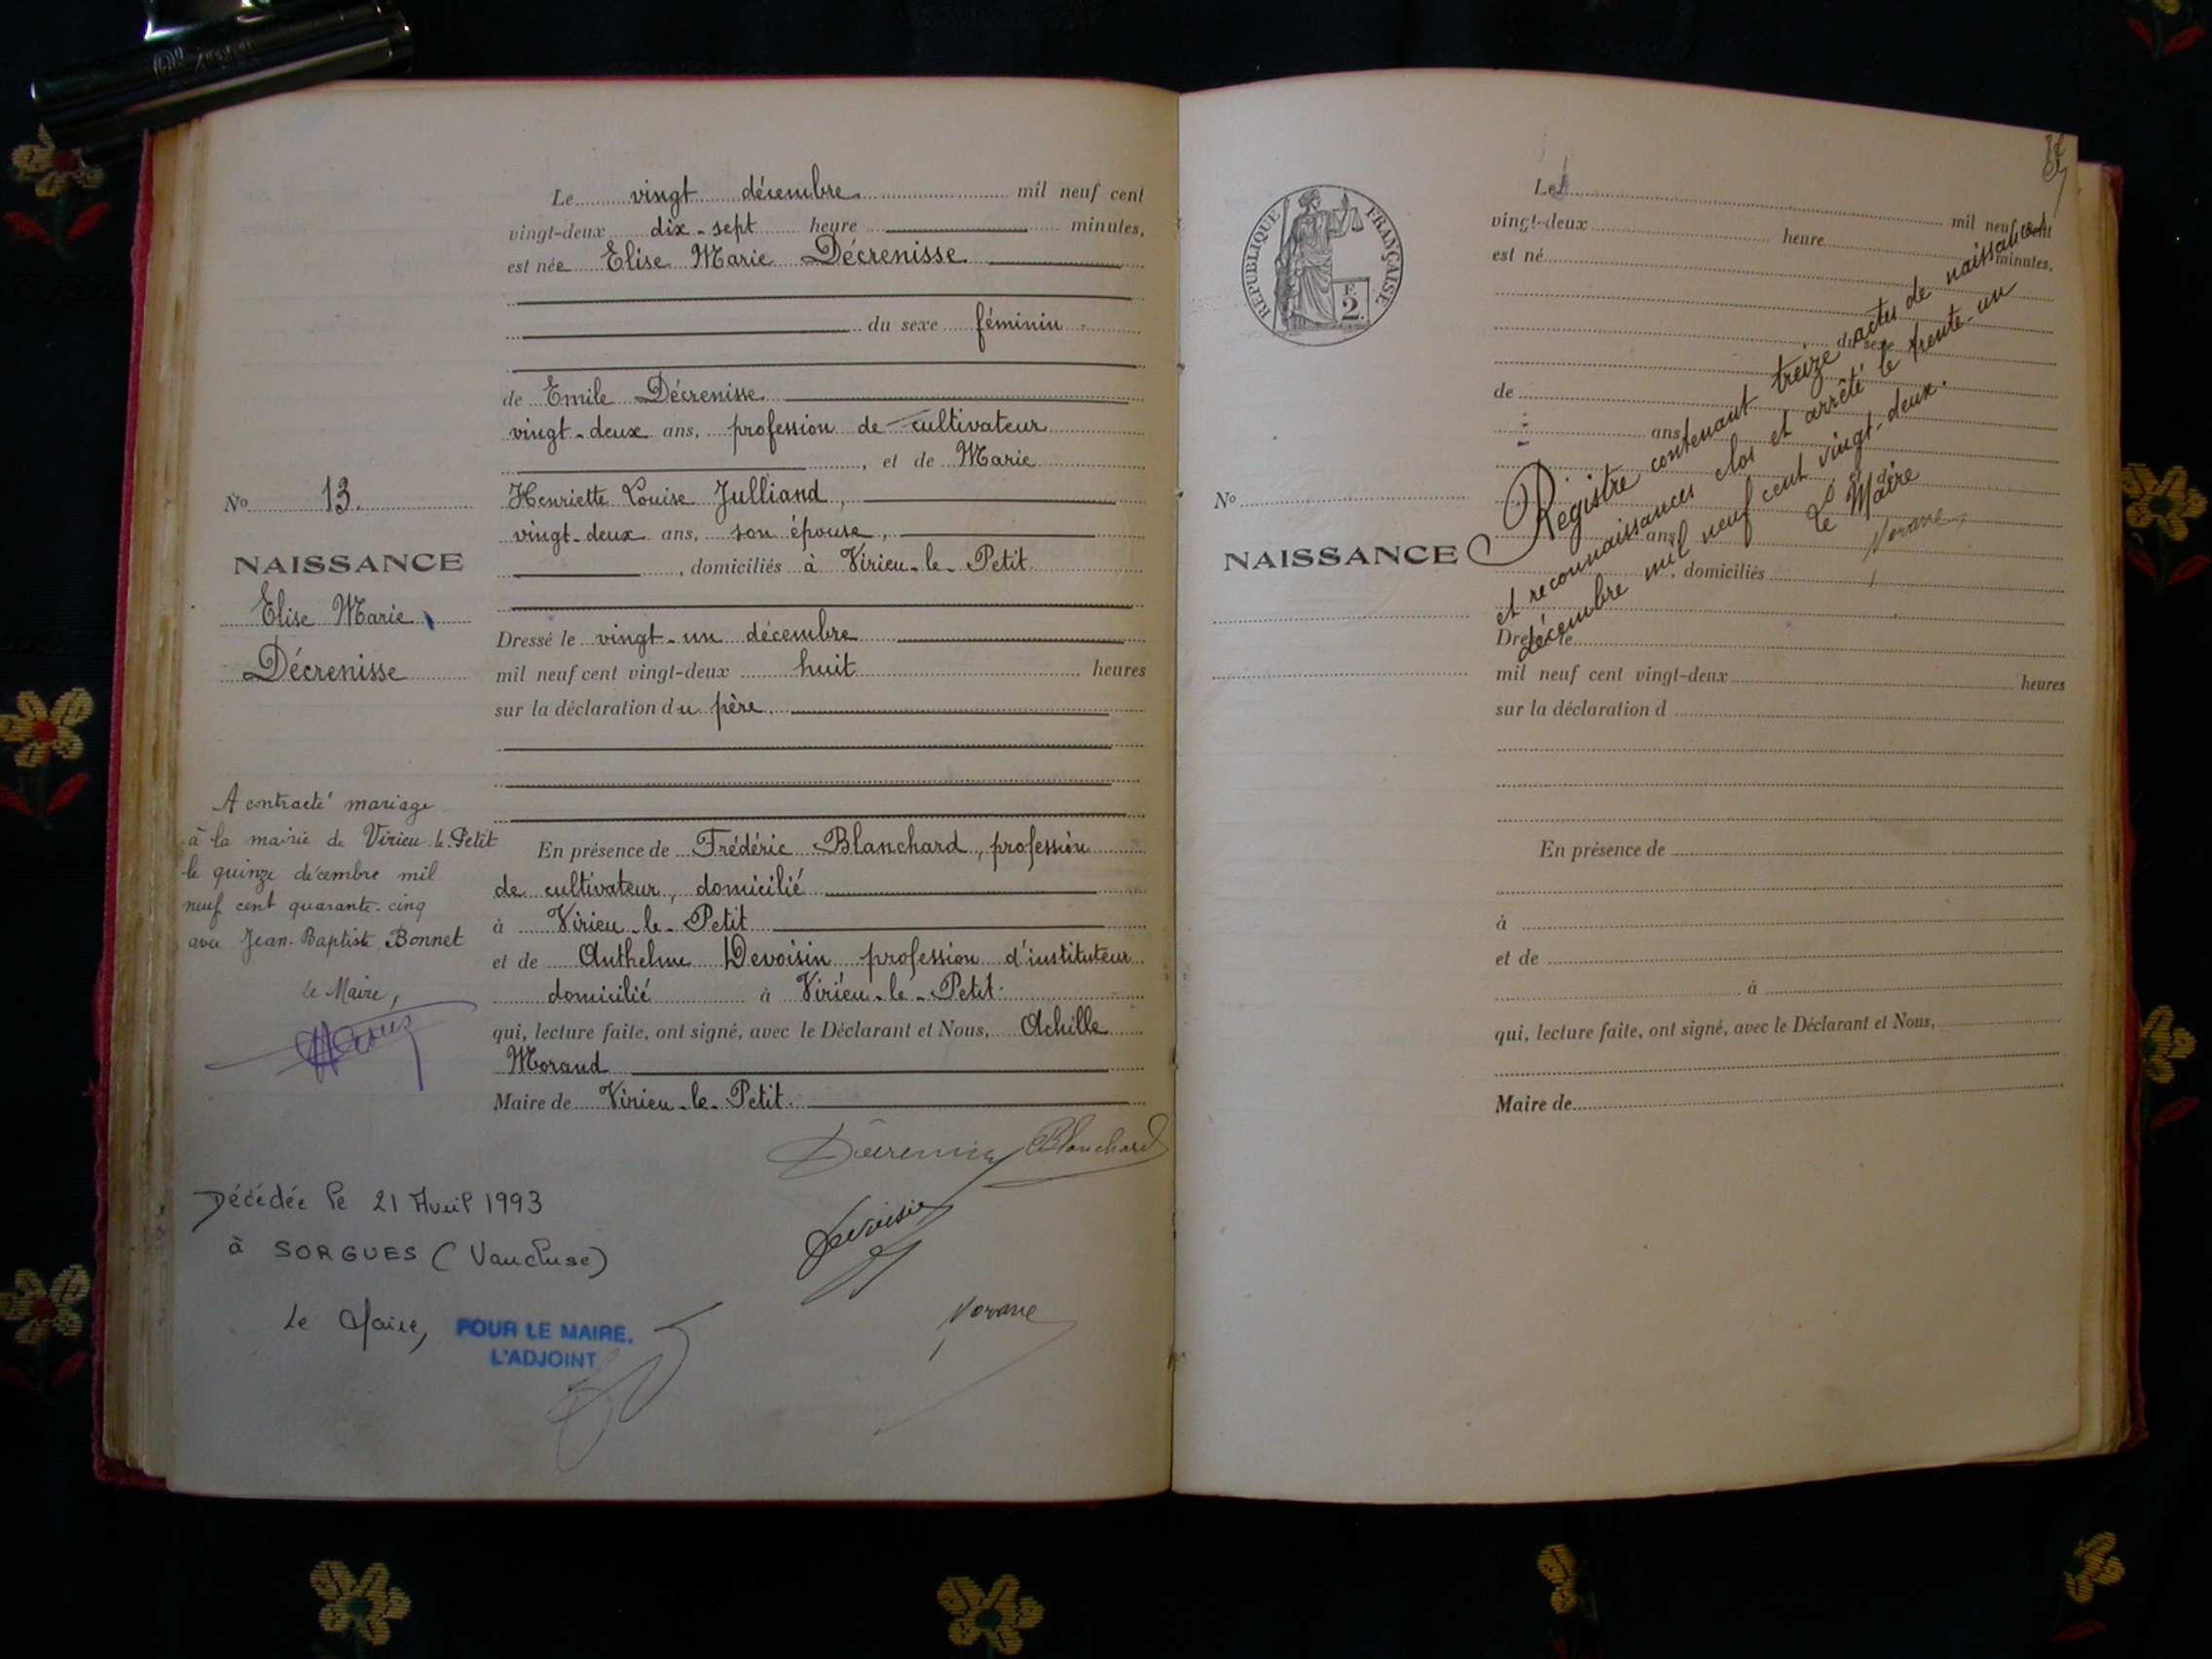 Le vingt décembre mil neuf cent
vingt-deux dix-sept heure minutes,
est née Elise Marie Décrenisse
du sexe féminin
de Emile Décrenisse
vingt-deux ans, profession de cultivateur
, et de Marie
Henriette Louise Julliand,
vingt-deux ans, son épouse,
, domiciliés à Virieu-le-Petit
Dressé le vingt-un décembre
mil neuf cent vingt-deux huit heures
sur la déclaration du père
En présence de Frédéric Blanchard, profession
de cultivateur, domicilié
à Virieu-le-Petit
et de Anthelme Devoisin profession d'instituteur
domicilié à Virieu-le-Petit
qui, lecture faite, ont signé, avec le Déclarant et Nous, Achille
Morand
Maire de Virieu-le-Petit.
Blanchard
Devoisin
No 13.
NAISSANCE
Elise Marie
Décrenisse
A contracté mariage
à la mairie de Virieu-le-Petit
le quinze décembre mil
neuf cent quarante-cinq
avec Jean-Baptiste Bonnet
le Maire,
Décédée le 21 Avril 1993
à SORGUES (Vaucluse)
Le Maire, POUR LE MAIRE,
L'ADJOINT
REPUBLIQUE FRANÇAISE
F.
2.
Le mil neuf cent
vingt-deux heure minutes,
est né
du sexe
de
ans
No
ans
NAISSANCE
, domiciliés
Dressé le
mil neuf cent vingt-deux heures
sur la déclaration d
En présence de
à
et de
à
qui, lecture faite, ont signé, avec le Déclarant et Nous,
Maire de
Registre contenant treize actes de naissances
et reconnaissances clos et arrêté le trente-un
décembre mil neuf cent vingt-deux.
Le Maire